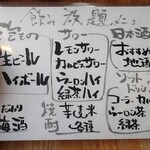 飲み放題メニュー
生もの
生ビール
ハイボール
こだわり
梅酒
サワー
レモンサワー
カルピスサワー
ウーロンハイ
緑茶ハイ
焼酎
芋・麦・米
各種
日本酒
おすすめ
地酒
ソフトドリンク
コーラ・カルピス
ウーロン茶
緑茶